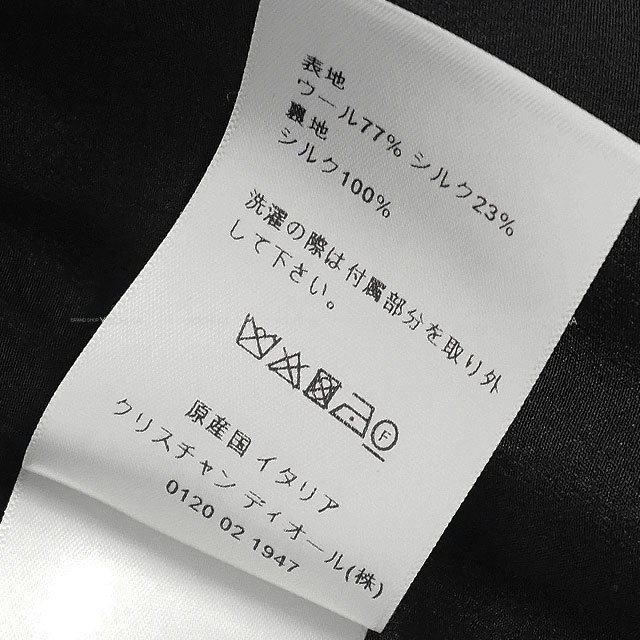 表地
ウール77% シルク23%
裏地
シルク100%
洗濯の際は付属部分を取り外
して下さい。
F
原産国 イタリア
クリスチャン ディオール(株)
0120 02 1947